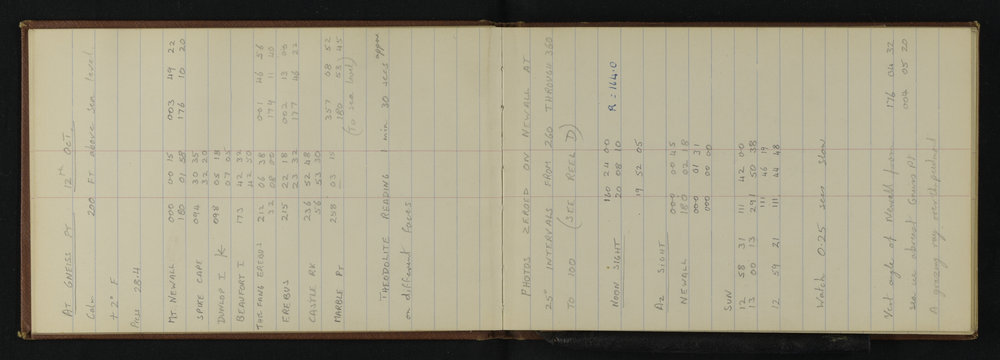 AT GNEISS PT 12TH OCT.
Calm 200 FT above sea level
+2° F
Press 28.4
MT NEWALL 000 00 15 003 49 22
180 01 58 176 10 20
SPIKE CAPE 094 30 35
32 20
DUNLOP I 098 05 18
07 05
BEAUFORT I 173 42 32
42 50
THE FANG EREBUS 212 06 38 001 46 56
32 08 00 179 11 40
EREBUS 215 22 18 002 13 00
23 32 177 46 22
CASTLE RK 236 52 48
56 53 30
MARBLE PT 258 03 10 357 08 52
180 53 45
(To sea level)
THEODOLITE READING 1 min 30 secs
on different faces
PHOTOS ZEROED ON NEWALL AT
25° INTERVALS FROM 260 THROUGH 360
TO 100 (SEE REEL D)
NOON SIGHT 160 24 00 R = 164.0
20 08 10
19 52 05
AZ SIGHT
000 00 45
NEWALL 180 02 18
000 01 31
000 00 00
SUN
12 58 31 111 42 00
13 00 13 291 50 38
111 46 19
12 59 21 111 44 48
Watch 0.25 secs slow
Vert angle of Newall from 176 04 32
sea ice abreast Gneiss Pt 004 05 20
A grazing ray over the